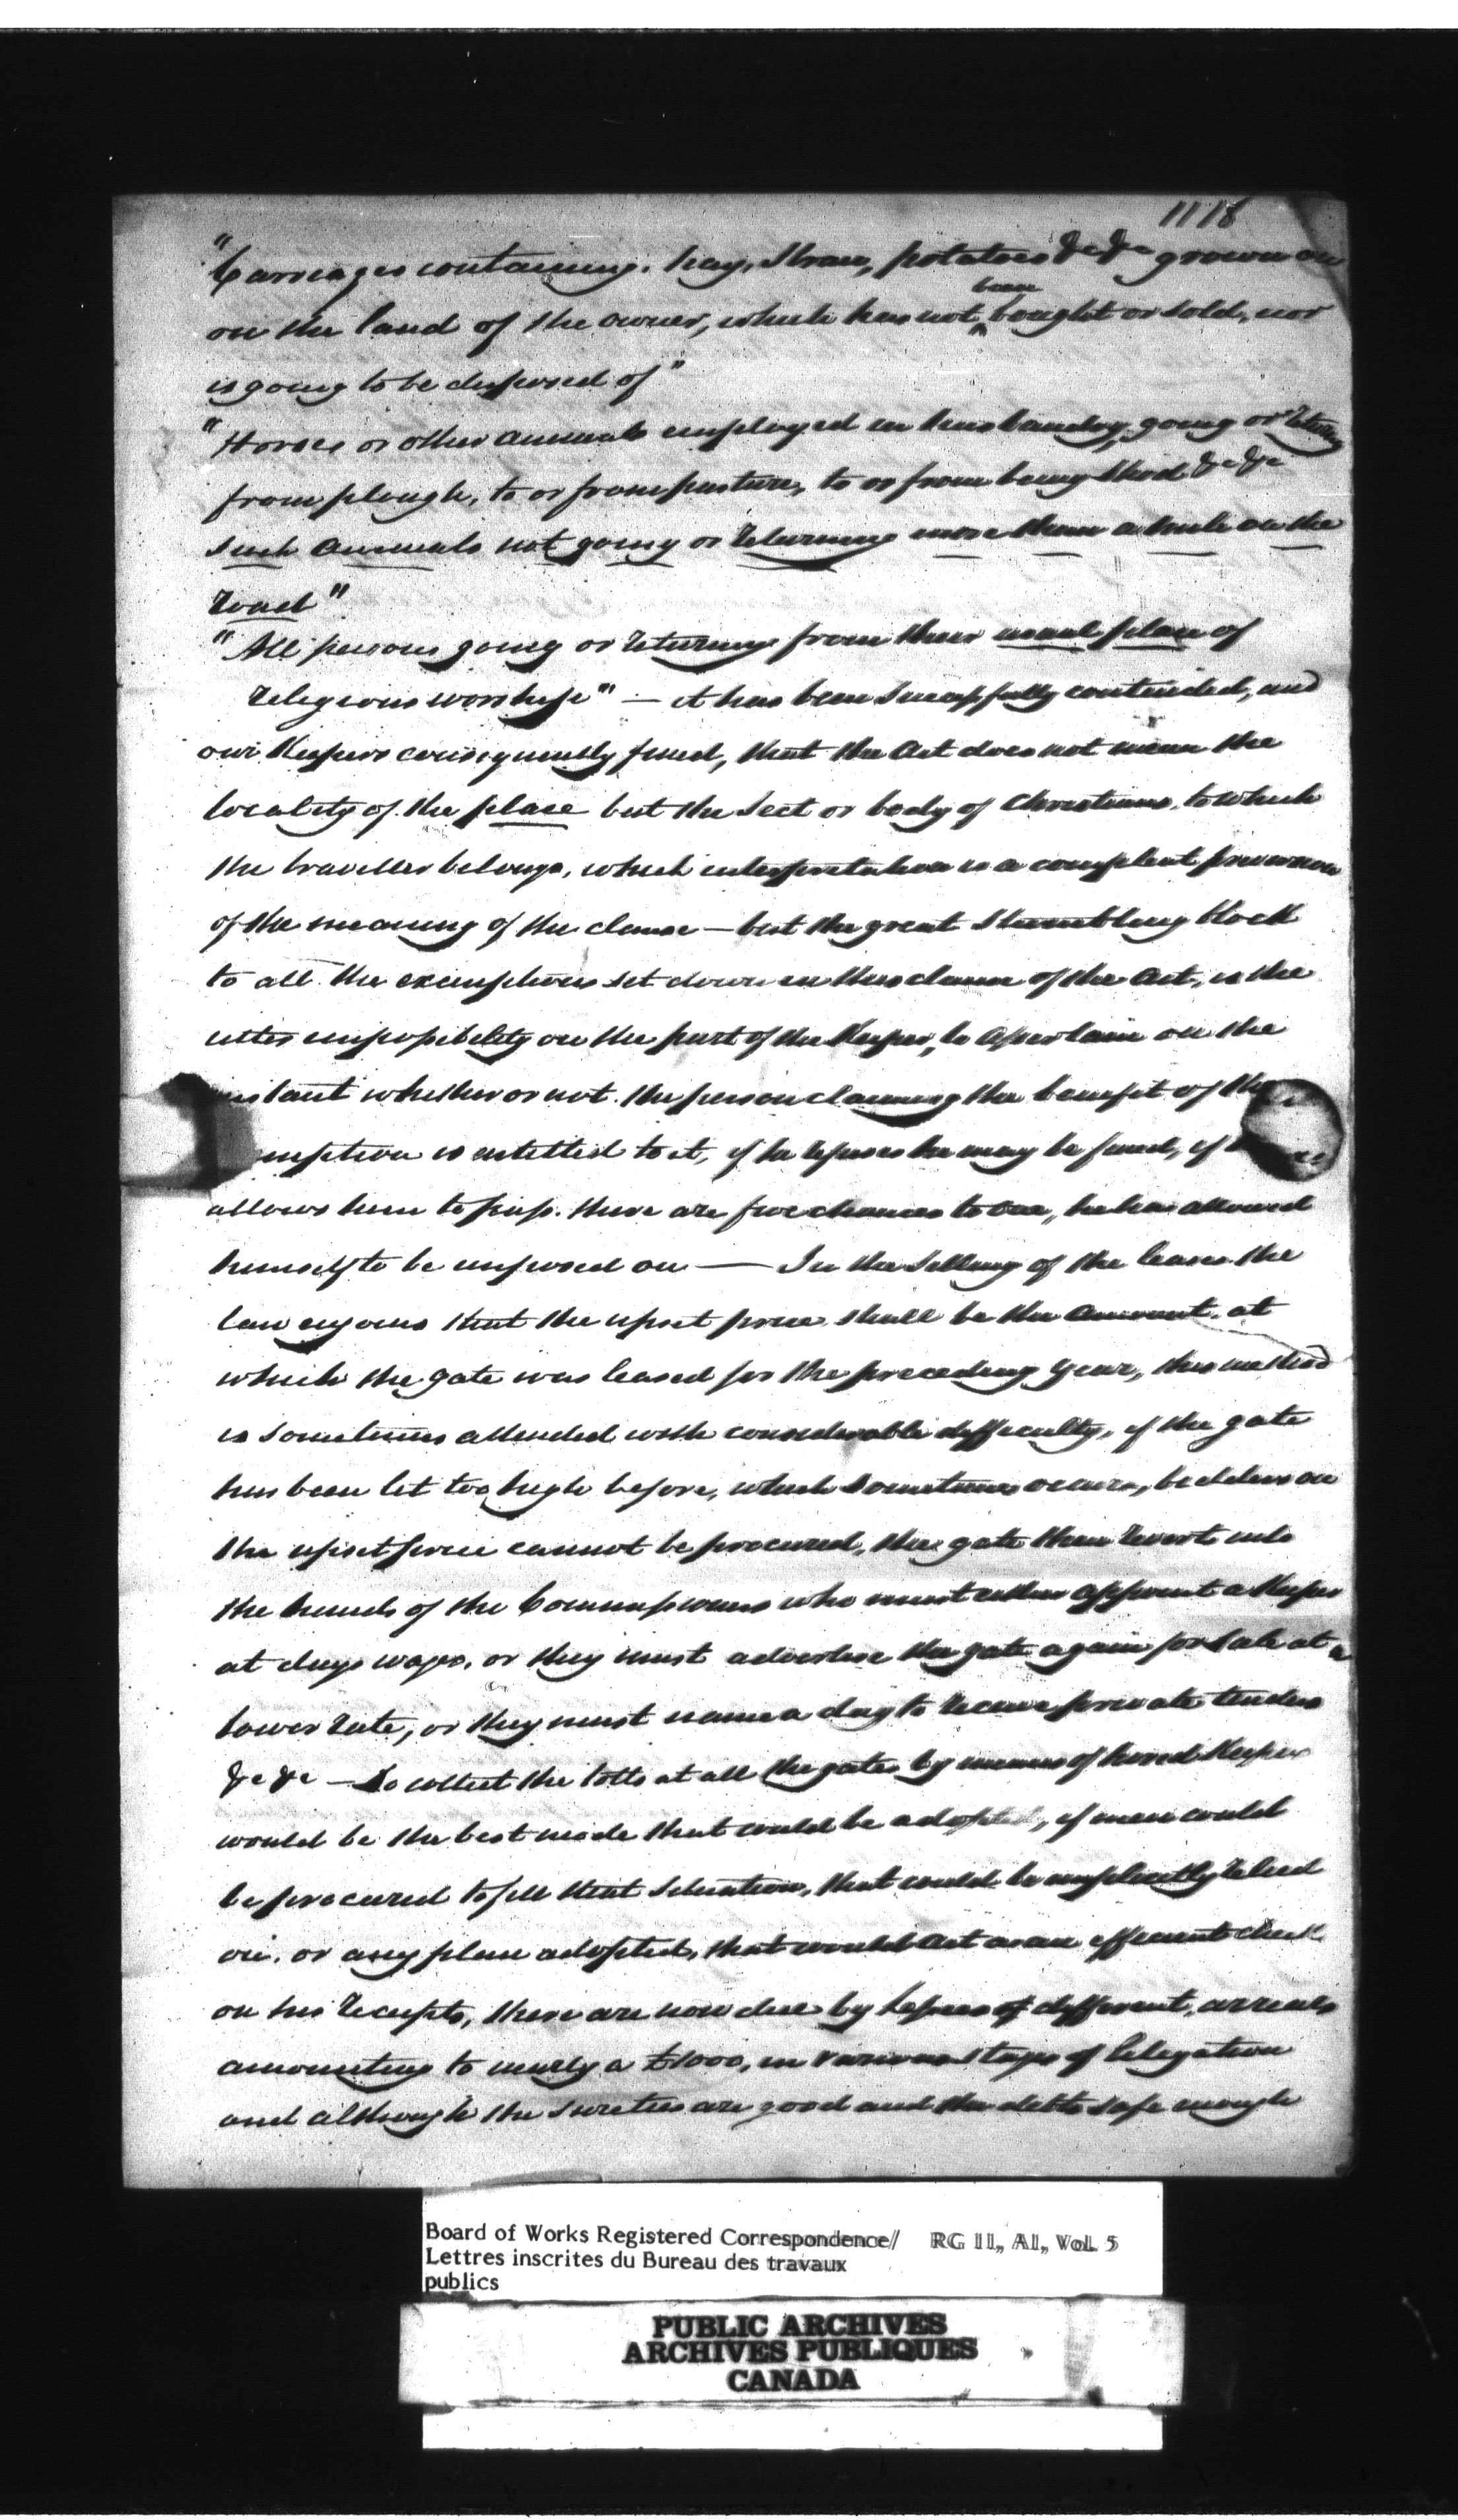 1118
"Carriages containing hay, Straw, potatoes &c &c grown on
on the land of the owner, which has not been bought or sold, nor
is going to be disposed of"
"Horses or other animals employed in husbandry, going or returning
from plough, to or from pasture, to or from being Shod &c &c
such animals not going or returning more than a mile on the
road"
"All persons going or returning from their usual place of
religious worship" — it has been Successfully contended, and
our Keepers consequently fined, that the Act does not mean the
locality of the place but the Sect or body of Christians, to which
the traveller belongs, which interpretation is a compleat perversion
of the meaning of the clause — but the great Stumbling block
to all the exemptions set down in this clause of the Act, is the
utter impossibility on the part of the Keeper, to Ascertain on the
instant whether or not the person claiming the benefit of the
emption is entitled to it, if he refuses he may be fined, if
allows him to pass, there are five chances to one, he has allowed
himself to be imposed on — In the Selling of the leases the
law enjoins that the upset price shall be the amount at
which the gate was leased for the preceding year, this method
is sometimes attended with considerable difficulty, if the gate
has been let too high before, which sometimes occurs, bidders on
the upset price cannot be procured, the gate then revert into
the hands of the Commissioners who must either appoint a Keeper
at days wages, or they must advertise the gate again for Sale at a
lower rate, or they must name a day to receive private tenders
&c &c — To collect the tolls at all the gates by means of hired Keepers
would be the best mode that could be adopted, if men could
be procured to fill that Situation, that could be implicitly relied
on, or any plan adopted, that would Act as an efficient check
on his receipts, there are now due by Lessees of different, arrears
amounting to nearly a £1000, in various stages of litigation
and although the Sureties are good and the debts safe enough
Board of Works Registered Correspondence// RG 11, A1, Vol. 5
Lettres inscrites du Bureau des travaux
publics
PUBLIC ARCHIVES
ARCHIVES PUBLIQUES
CANADA